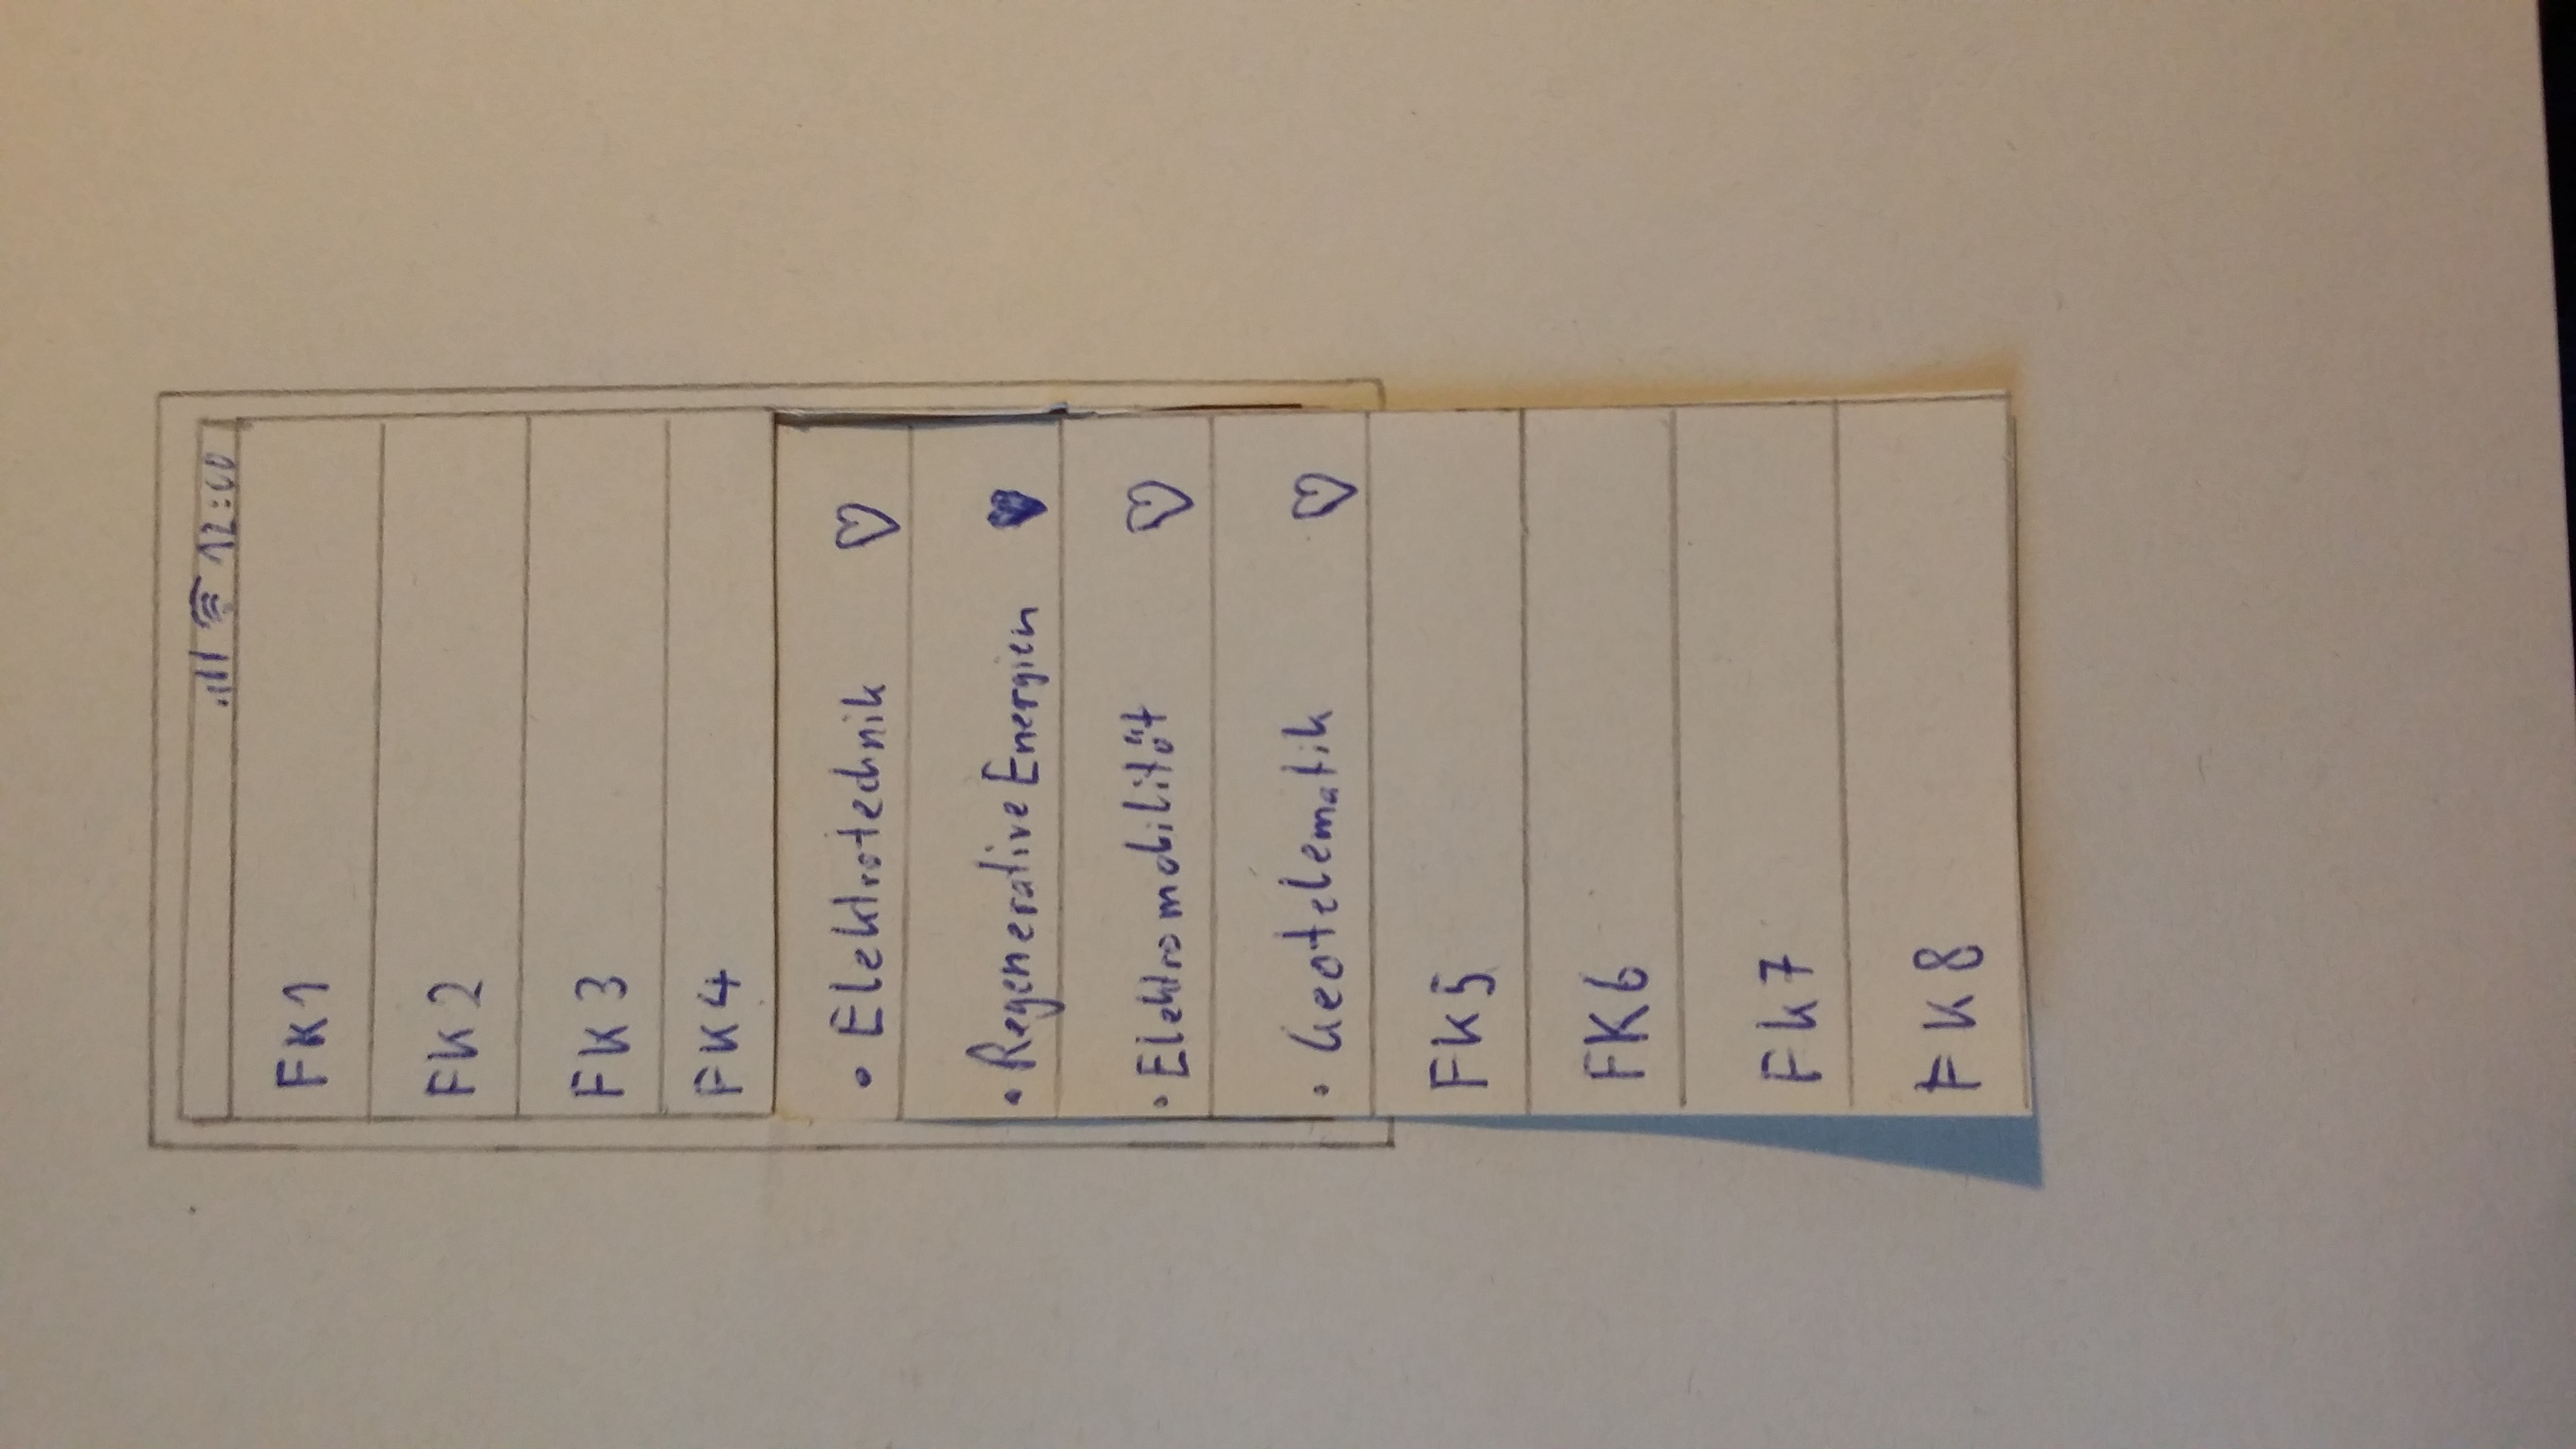 12:00
FK1
FK2
FK3
FK4
• Elektrotechnik ♡
• Regenerative Energien ♥
• Elektromobilität ♡
• Geotelematik ♡
FK5
FK6
FK7
FK8